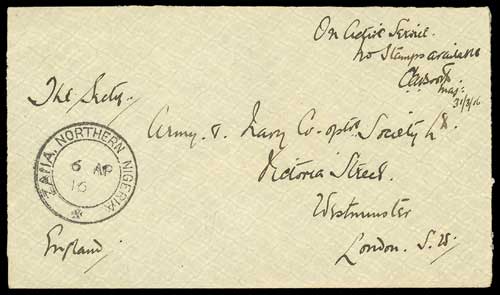 On Active Service.
No Stamps available
Maj:
31/3/16
The Secty.
Army & Navy Co-optve Society Ld.
Victoria Street.
Westminster
London. S.W.
England.
ZARIA. NORTHERN NIGERIA
6 AP
16